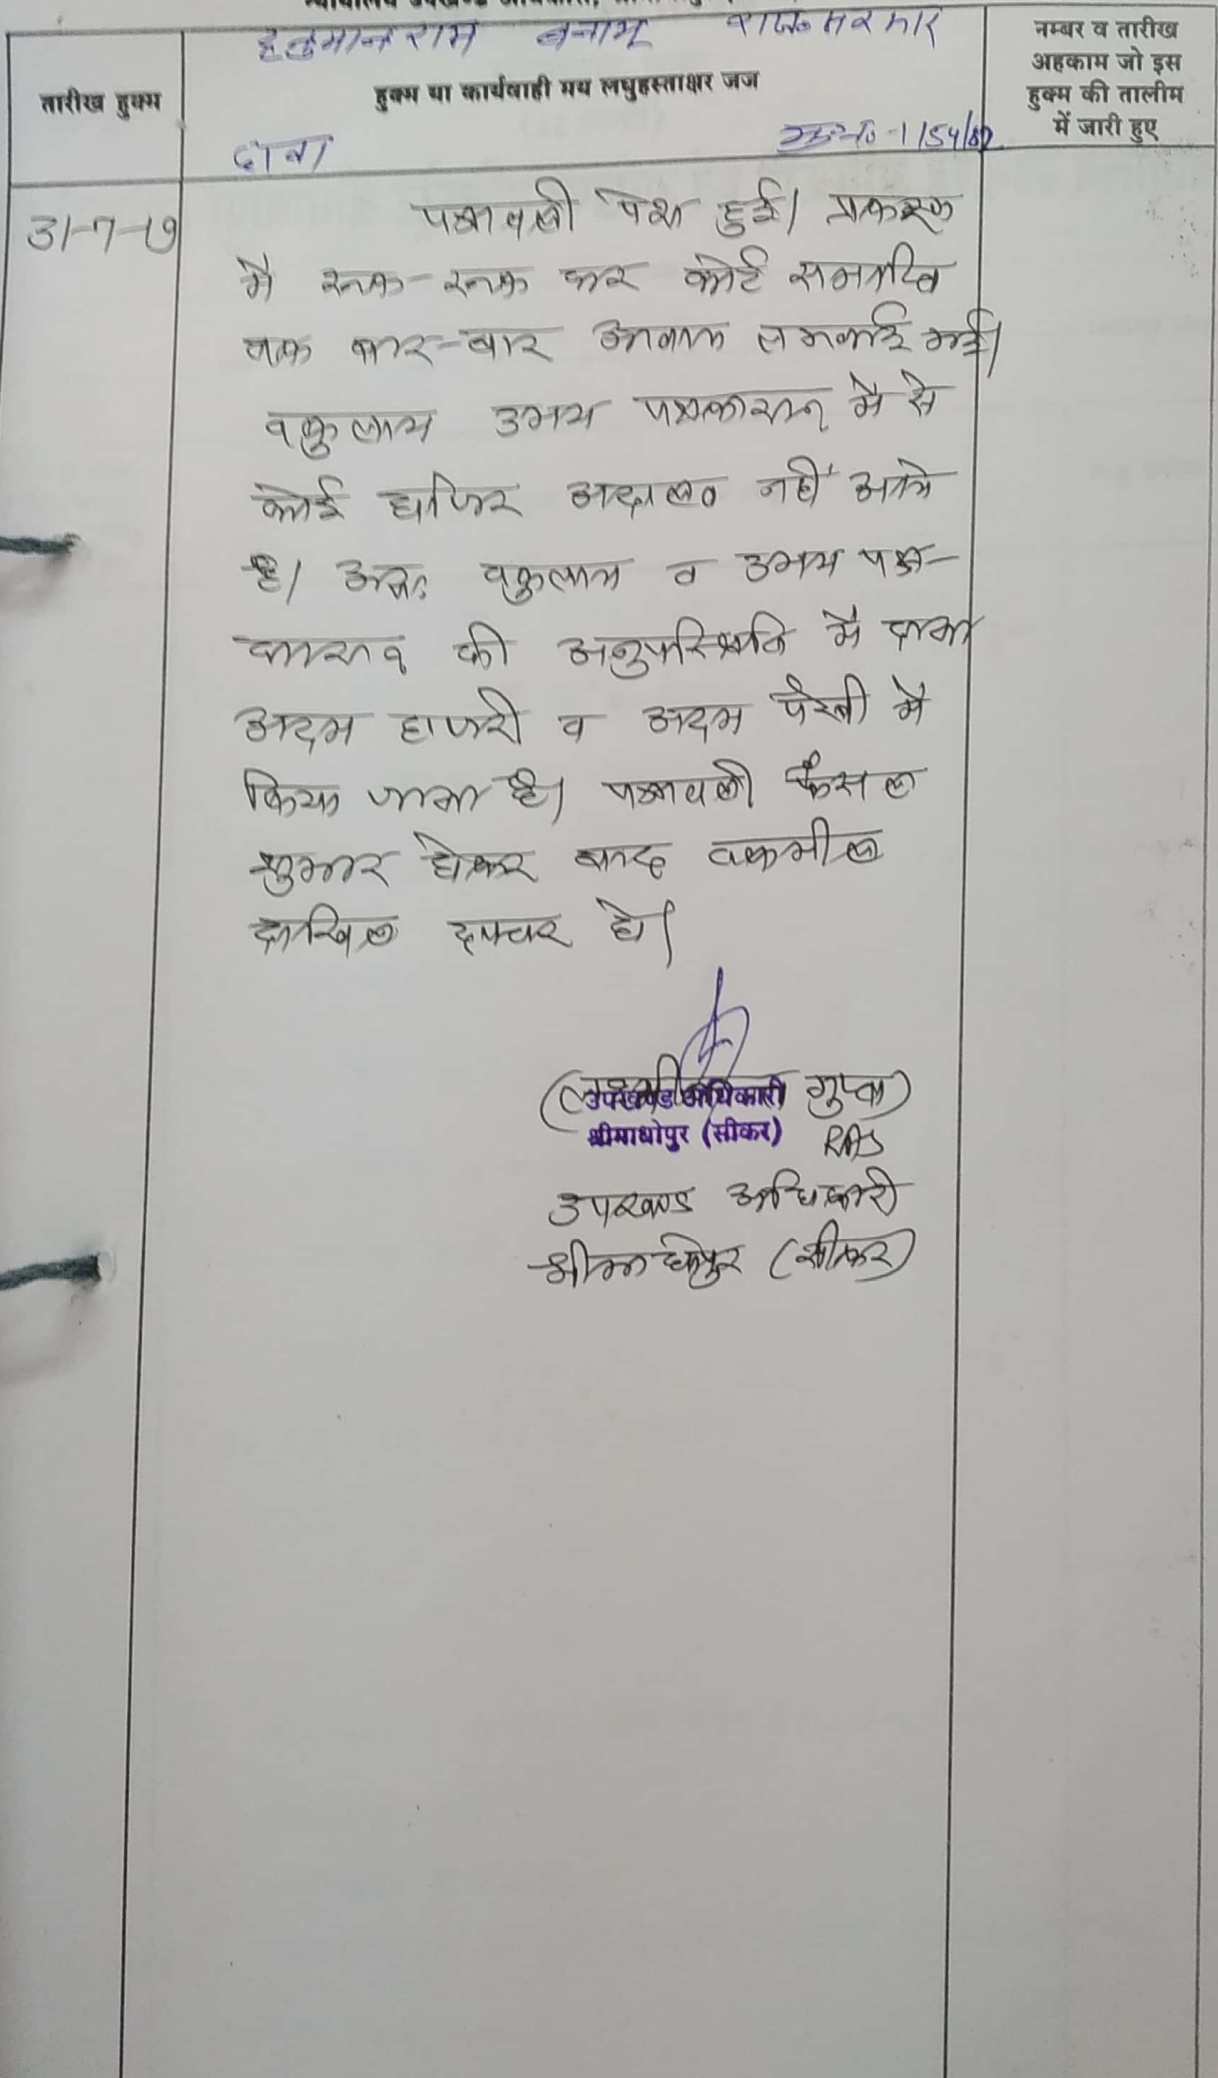 हनुमानराम बनाम राज. सरकार
तारीख हुक्म
हुक्म या कार्यवाही मय लघुहस्ताक्षर जज
नम्बर व तारीख
अहकाम जो इस
हुक्म की तालीम
में जारी हुए
दावा
31-7-19
पत्रावली पेश हुई। प्रकरण
मे रूक-रूक कर कोर्ट समाप्ति
तक बार-बार आवाज लगवाई गई।
वकुलाय उभय पक्षकारान् मे से
कोई हाजिर अदालत नहीं आये
है। अतः वकुलाय व उभय पक्ष-
कारान् की अनुपस्थिति मे दावा
अदम हाजरी व अदम पैरवी मे
किया जाता है। पत्रावली फैसल
शुमार होकर बाद तकमील
दाखिल दफ्तर हो।
गुप्ता)
उपखण्ड अधिकारी
श्रीमाधोपुर (सीकर)
RAS
उपखण्ड अधिकारी
श्रीमाधोपुर (सीकर)